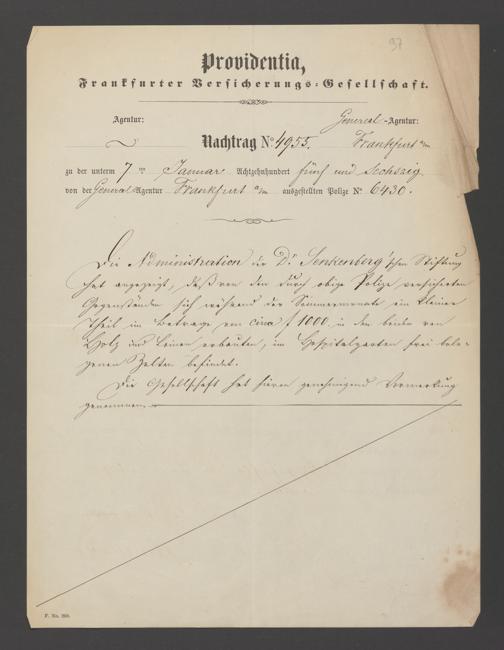 97
Providentia,
Frankfurter Versicherungs-Gesellschaft.
Agentur: General-Agentur:
Nachtrag No 4955. Frankfurt a/m
zu der unterm 7ten Januar Achtzehnhundert fünf und Sechszig
von der General-Agentur Frankfurt a/m ausgestellten Polize No 6430.
Die Administration der Dr. Senkenberg'schen Stiftung
hat angezeigt, daß von den durch obige Polize versicherten
Gegenständen sich während der Sommermonate ein kleiner
Theil im Betrage von circa f 1000. in den beiden von
Holz und Leinen erbauten, im Hospitalgarten frei bele-
genen Zelten befindet.
Die Gesellschaft hat hievon genehmigend Vormerkung
genommen.
F. No. 260.